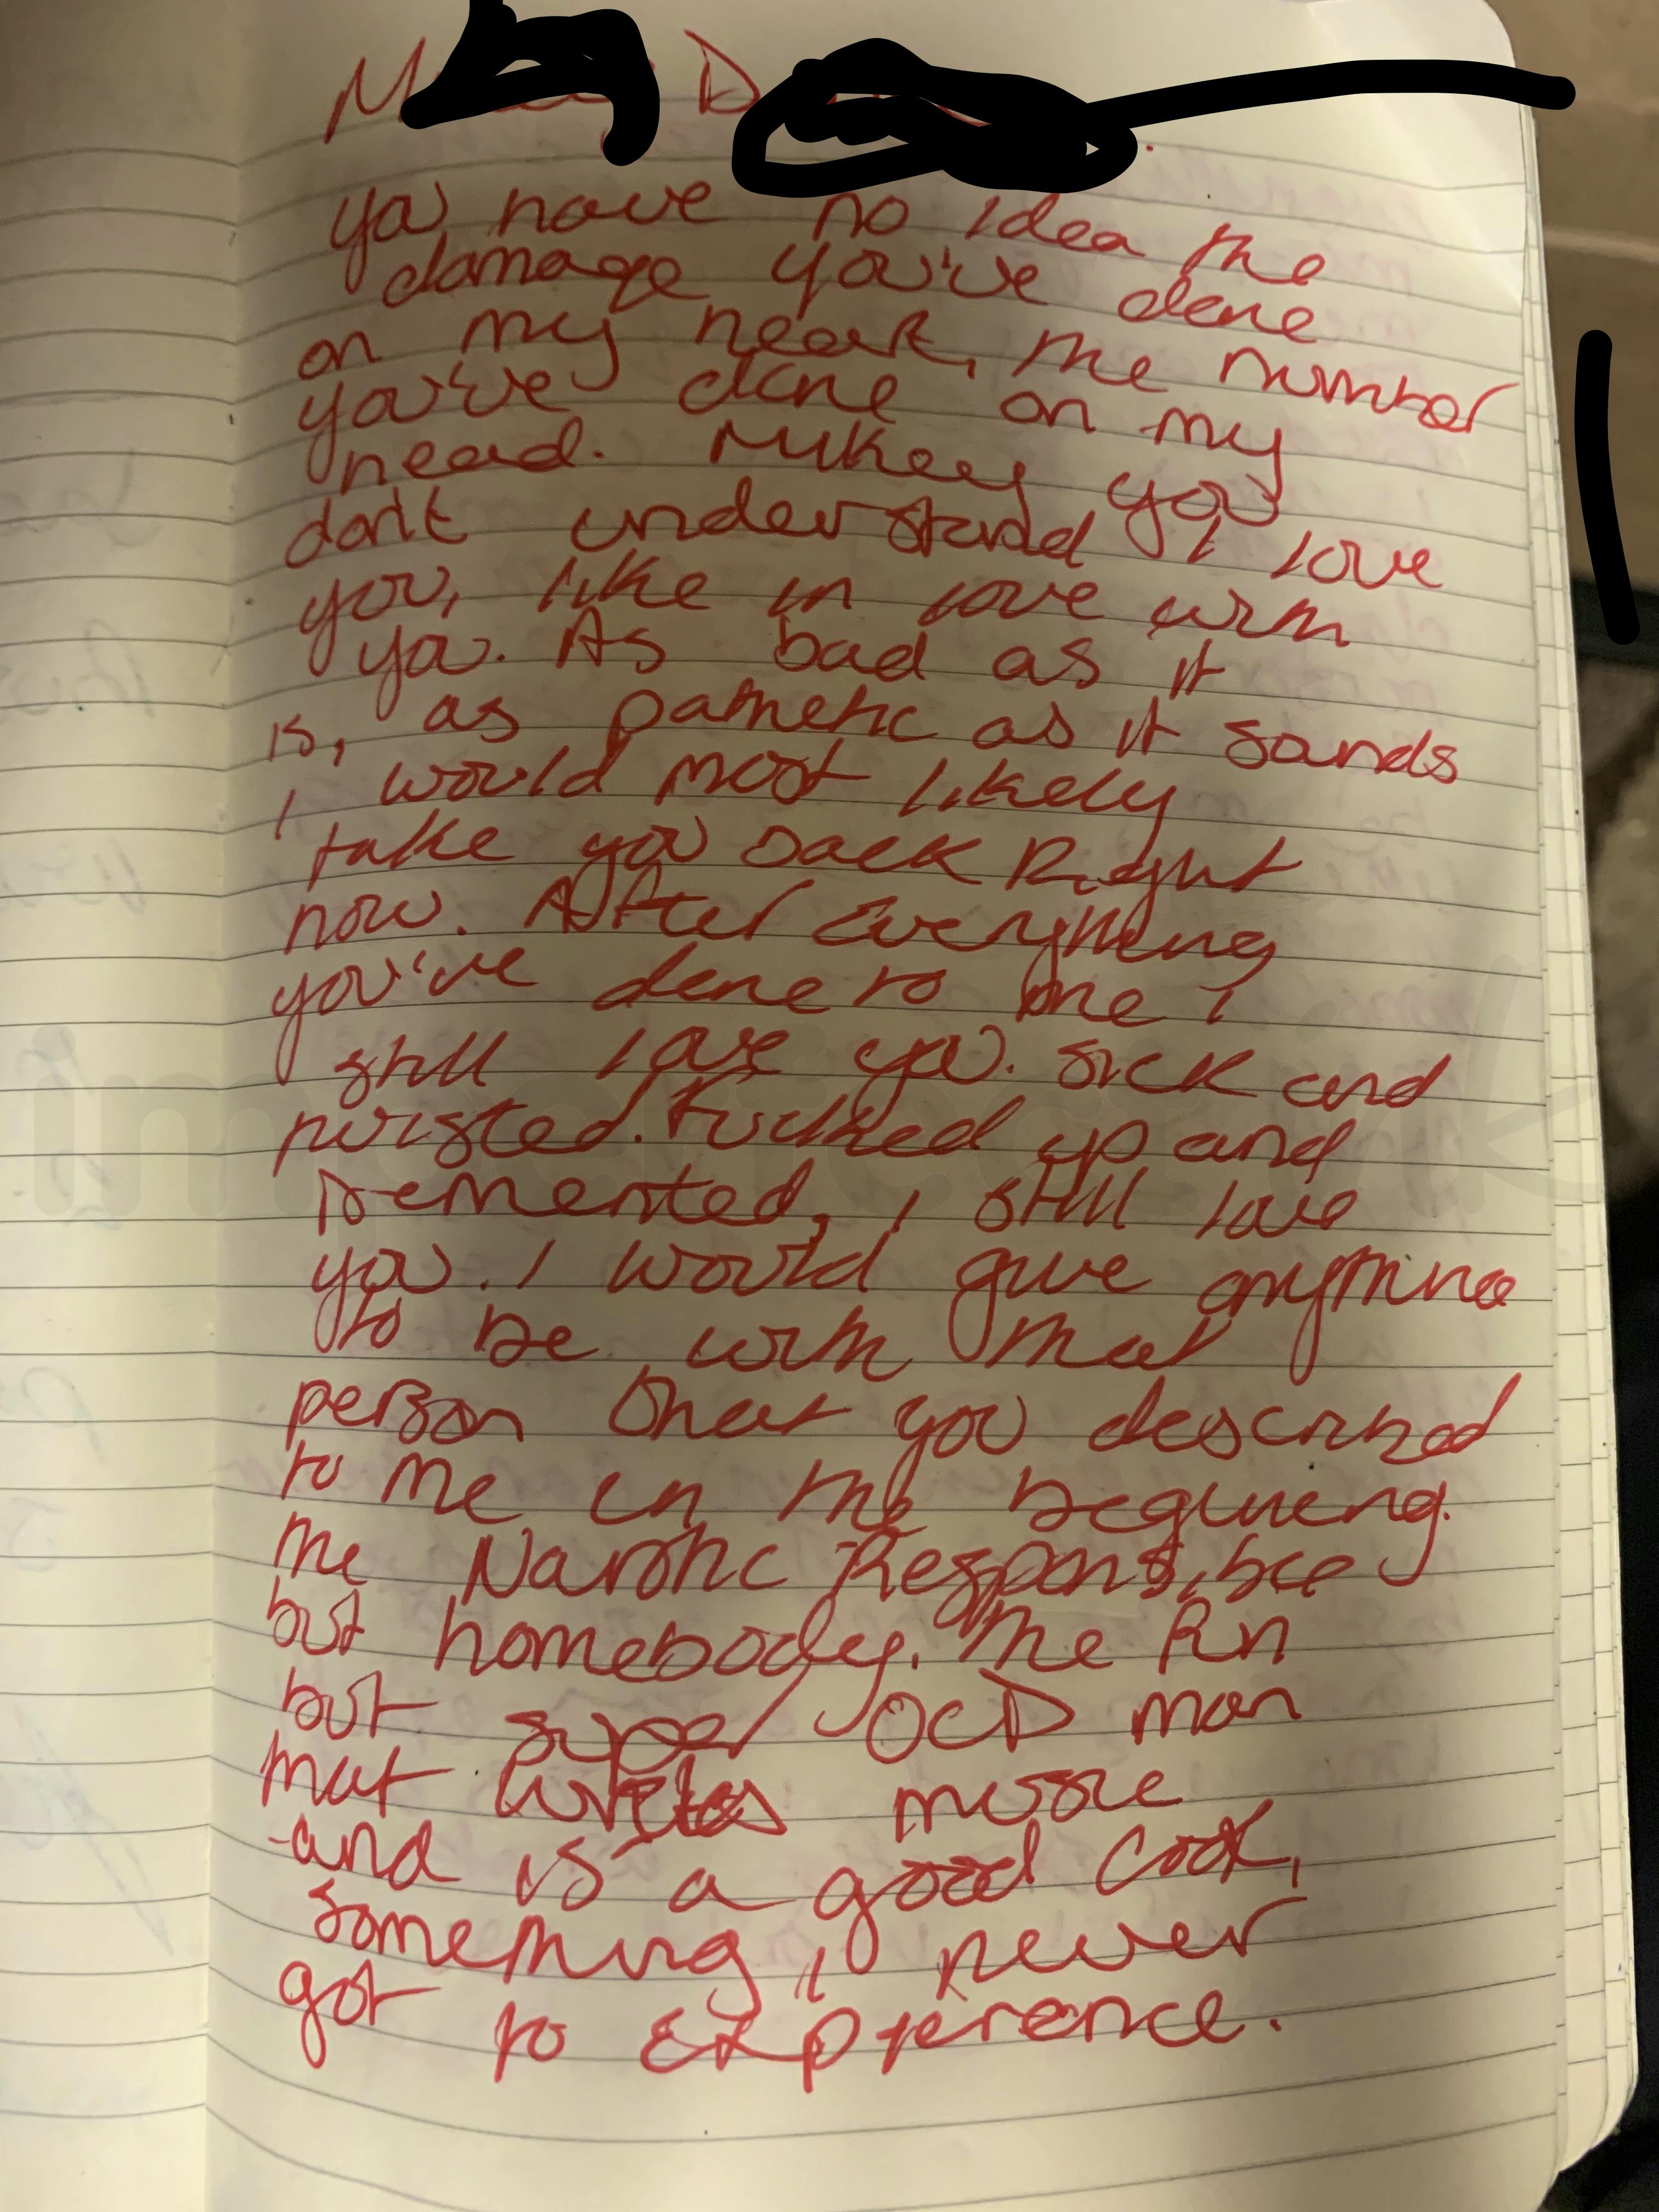 you have no idea the
damage you've done
on my heart, the number
you've done on my
head. Mikey you
don't understand I love
you, like in love with
you. As bad as it
is, as pathetic as it sounds
I would most likely
take you back Right
now. After everything
you've done to me i
still love you. sick and
twisted. Fucked up and
Demented, I still love
you. I would give anything
to be with that
person that you described
to me in the beginning.
the Responsible
but homebody. The Rn
but super OCD man
that writes music
and is a good cook,
something i never
got to Experience.
imperfect ink